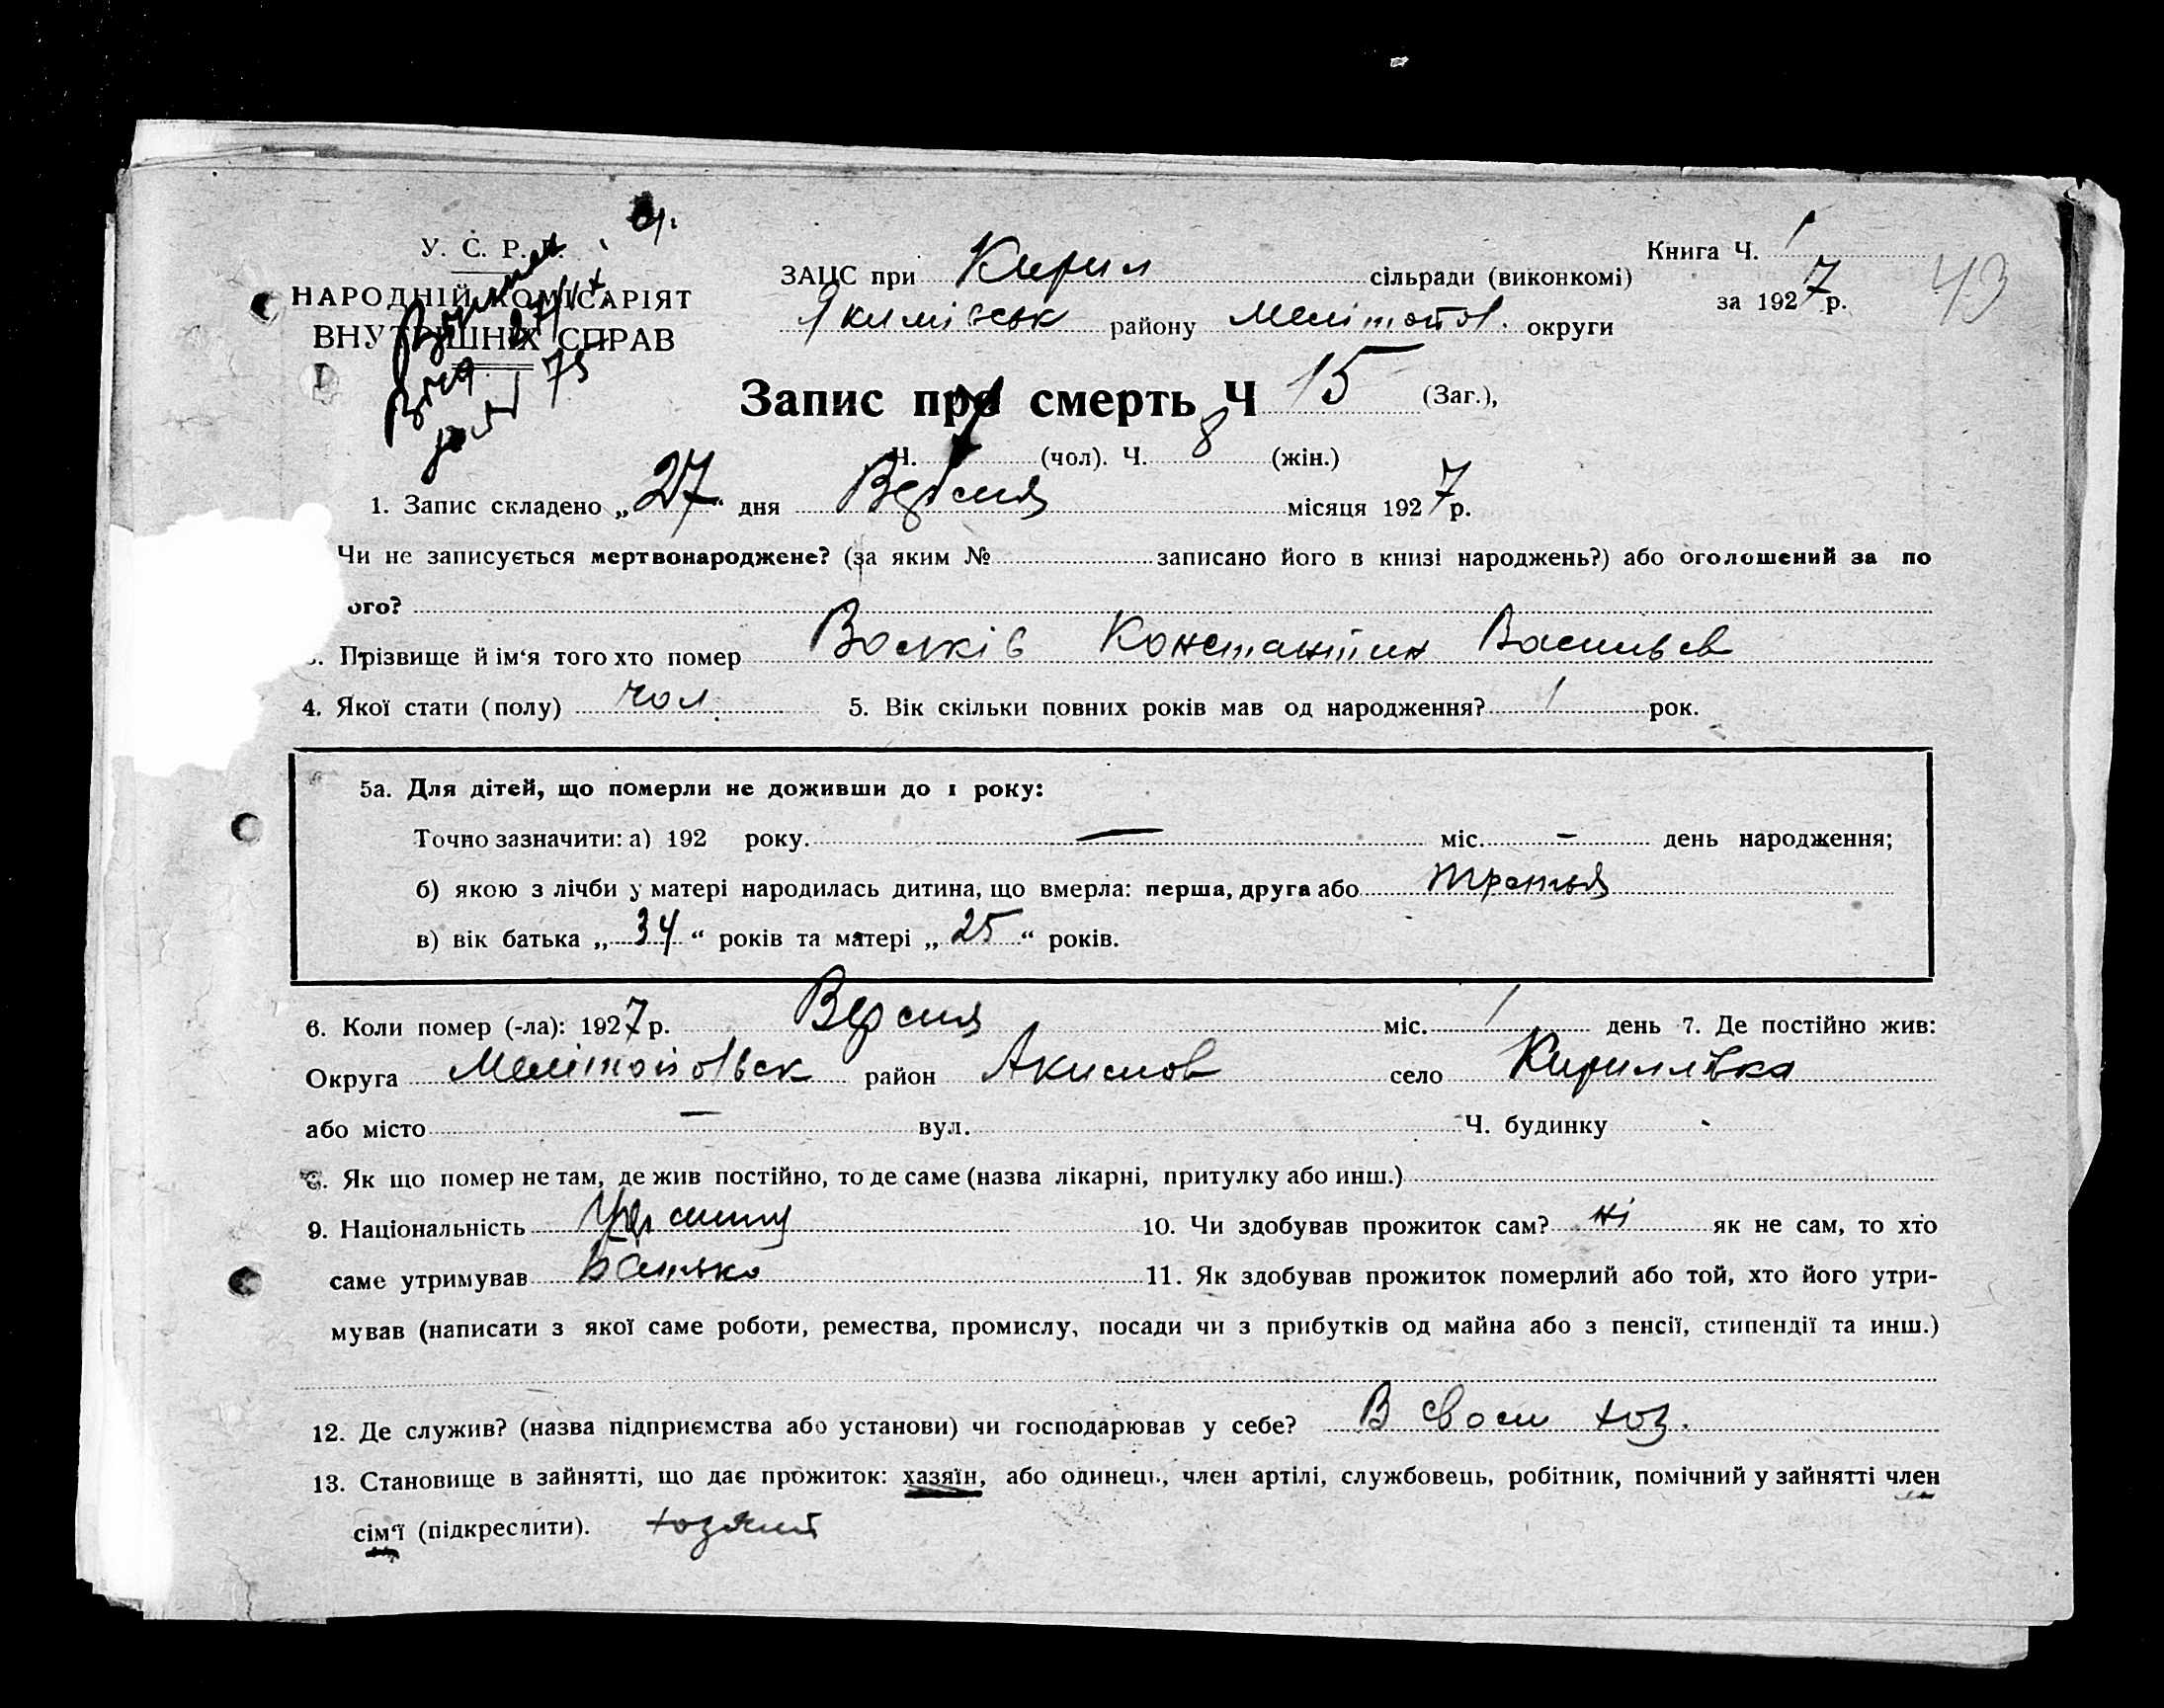 У. С. Р. Р.
НАРОДНІЙ КОМІСАРІЯТ
ВНУТРІШНІХ СПРАВ
ЗАЦС при Кирил сільради (виконкомі)
Якимівськ району Мелітопол. округи
Книга Ч. 1
за 1927 р.
43
Запис про смерть Ч 15 (Заг.),
Ч. (чол). Ч. 8 (жін.)
1. Запис складено „27“ дня Вересня місяця 1927 р.
Чи не записується мертвонароджене? (за яким № записано його в книзі народжень?) або оголошений за по
ого?
Прізвище й ім‘я того хто помер Волків Константин Васильев
4. Якої стати (полу) чол. 5. Вік скільки повних років мав од народження? 1 рок.
5а. Для дітей, що померли не доживши до 1 року:
Точно зазначити: а) 192 року. — міс. – день народження;
б) якою з лічби у матері народилась дитина, що вмерла: перша, друга або третья
в) вік батька „34“ років та матері „25“ років.
6. Коли помер (-ла): 1927 р. Версня міс. 1 день 7. Де постійно жив:
Округа район Акимов село Кирилівка
або місто — вул. Ч. будинку
Як що помер не там, де жив постійно, то де саме (назва лікарні, притулку або инш.)
9. Національність 10. Чи здобував прожиток сам? ні як не сам, то хто
саме утримував Батько 11. Як здобував прожиток померлий або той, хто його утри-
мував (написати з якої саме роботи, ремества, промислу, посади чи з прибутків од майна або з пенсії, стипендії та инш.)
12. Де служив? (назва підприємства або установи) чи господарював у себе? В своєм хоз.
13. Становище в зайнятті, що дає прожиток: хазяїн, або одинець, член артілі, службовець, робітник, помічний у зайнятті член
сім‘ї (підкреслити). хозяин